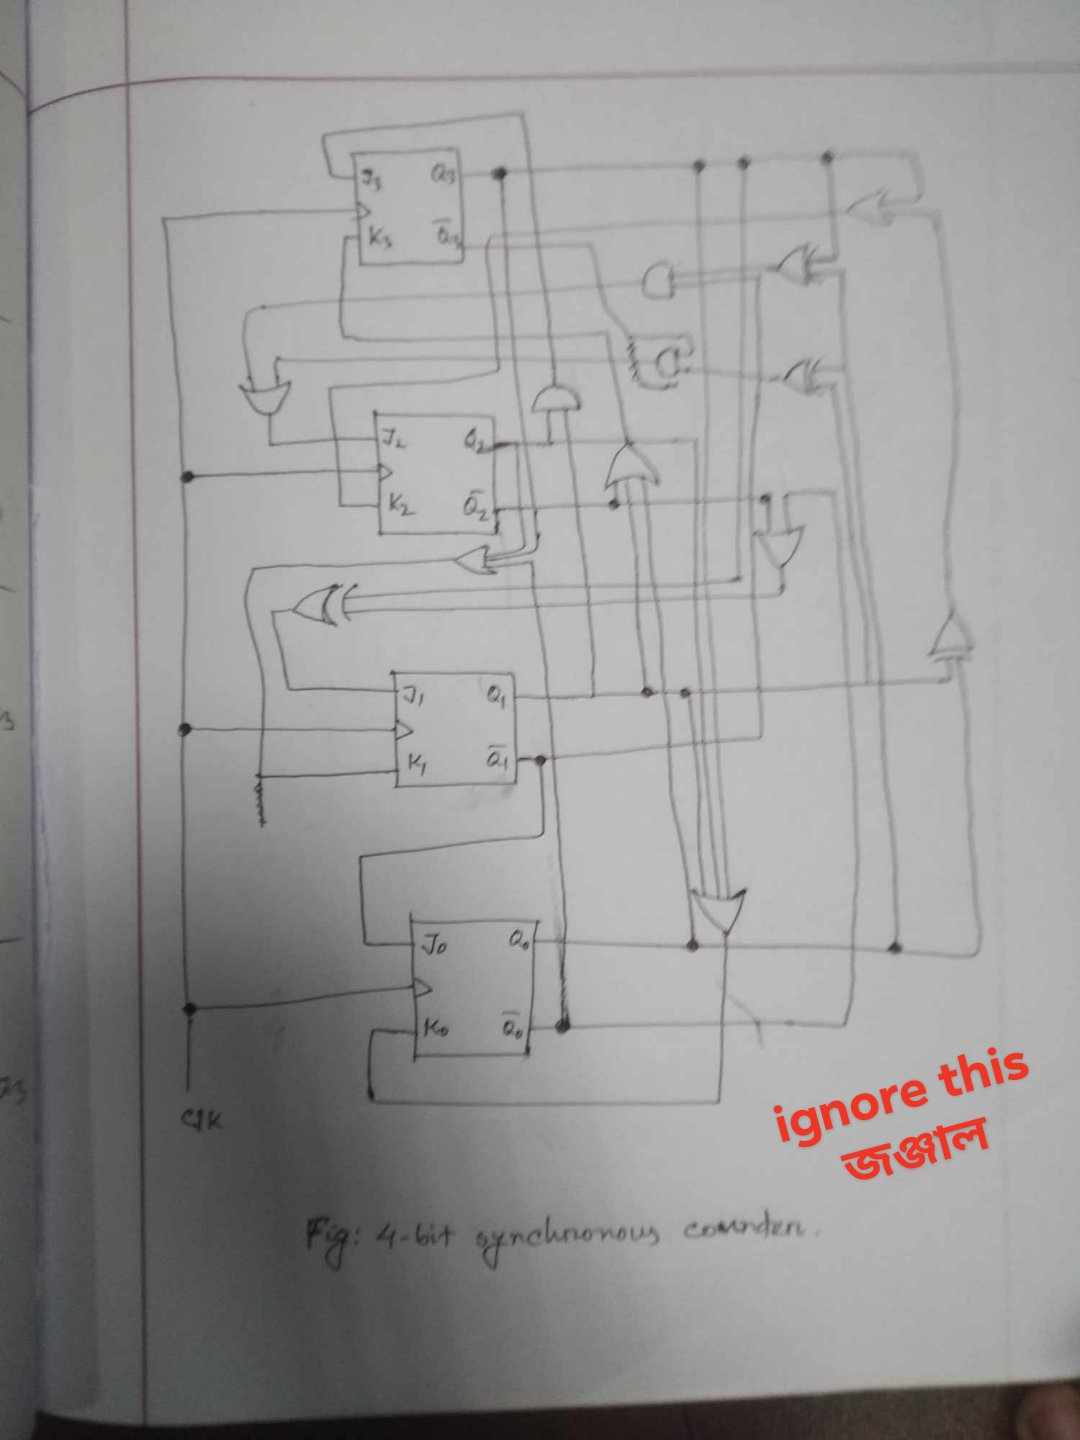 J₃ Q₃
K₃ Q̅₃
J₂ Q₂
K₂ Q̅₂
J₁ Q₁
K₁ Q̅₁
J₀ Q₀
K₀ Q̅₀
CLK
ignore this
জঞ্জাল
Fig: 4-bit synchronous counter.